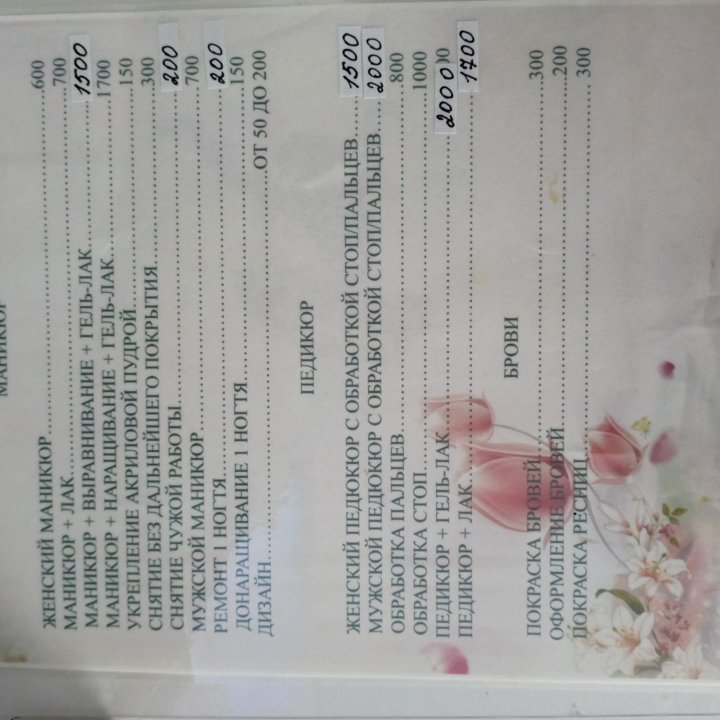 МАНИКЮР
ЖЕНСКИЙ МАНИКЮР........600
МАНИКЮР + ЛАК........700
МАНИКЮР + ВЫРАВНИВАНИЕ + ГЕЛЬ-ЛАК........1500
МАНИКЮР + НАРАЩИВАНИЕ + ГЕЛЬ-ЛАК........1700
УКРЕПЛЕНИЕ АКРИЛОВОЙ ПУДРОЙ........150
СНЯТИЕ БЕЗ ДАЛЬНЕЙШЕГО ПОКРЫТИЯ........300
СНЯТИЕ ЧУЖОЙ РАБОТЫ........200
МУЖСКОЙ МАНИКЮР........700
РЕМОНТ 1 НОГТЯ........200
ДОНАРАЩИВАНИЕ 1 НОГТЯ........150
ДИЗАЙН........ОТ 50 ДО 200
ПЕДИКЮР
ЖЕНСКИЙ ПЕДЮКЮР С ОБРАБОТКОЙ СТОП/ПАЛЬЦЕВ........1500
МУЖСКОЙ ПЕДЮКЮР С ОБРАБОТКОЙ СТОП/ПАЛЬЦЕВ........2000
ОБРАБОТКА ПАЛЬЦЕВ........800
ОБРАБОТКА СТОП........1000
ПЕДИКЮР + ГЕЛЬ-ЛАК........2000
ПЕДИКЮР + ЛАК........1700
БРОВИ
ПОКРАСКА БРОВЕЙ........300
ОФОРМЛЕНИЕ БРОВЕЙ........200
ПОКРАСКА РЕСНИЦ........300